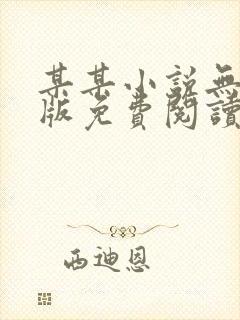 某某小說無
版免費閱讀
西迪恩